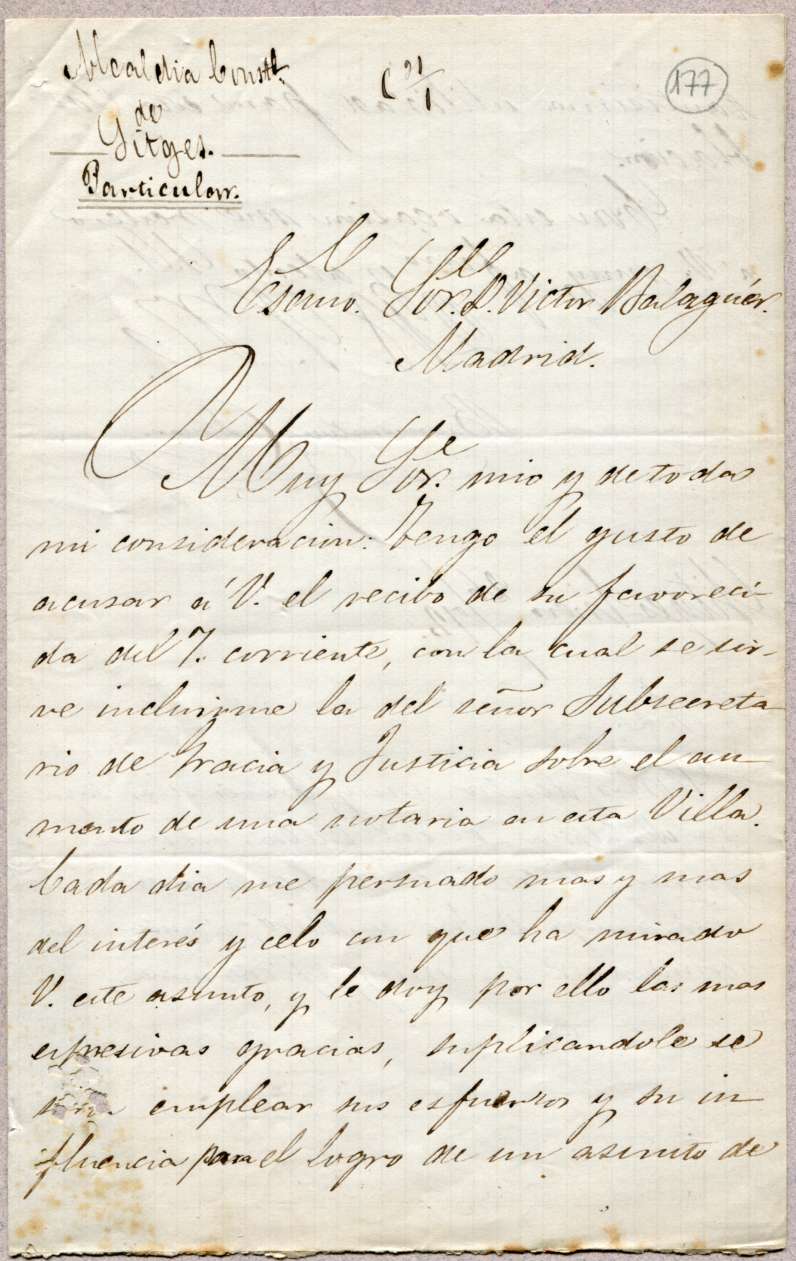 Alcaldia Constl.
de
Sitges.
Particular.
C 21/1
177
Escmo. Sor. D. Victor Balaguér.
Madrid.
Muy Sor. mio y de toda
mi consideracion: Tengo el gusto de
acusar á V. el recibo de su favoreci-
da del 7. corriente, con la cual se sir-
ve incluirme la del señor Subsecreta-
rio de Gracia y Justicia sobre el au-
mento de una notaria en esta Villa.
Cada dia me persuado mas y mas
del interés y celo con que ha mirado
V. este asunto, y le doy por ello las mas
espresivas gracias, suplicandole se
emplear sus esfuerzos y su in-
fluencia para el logro de un asunto de